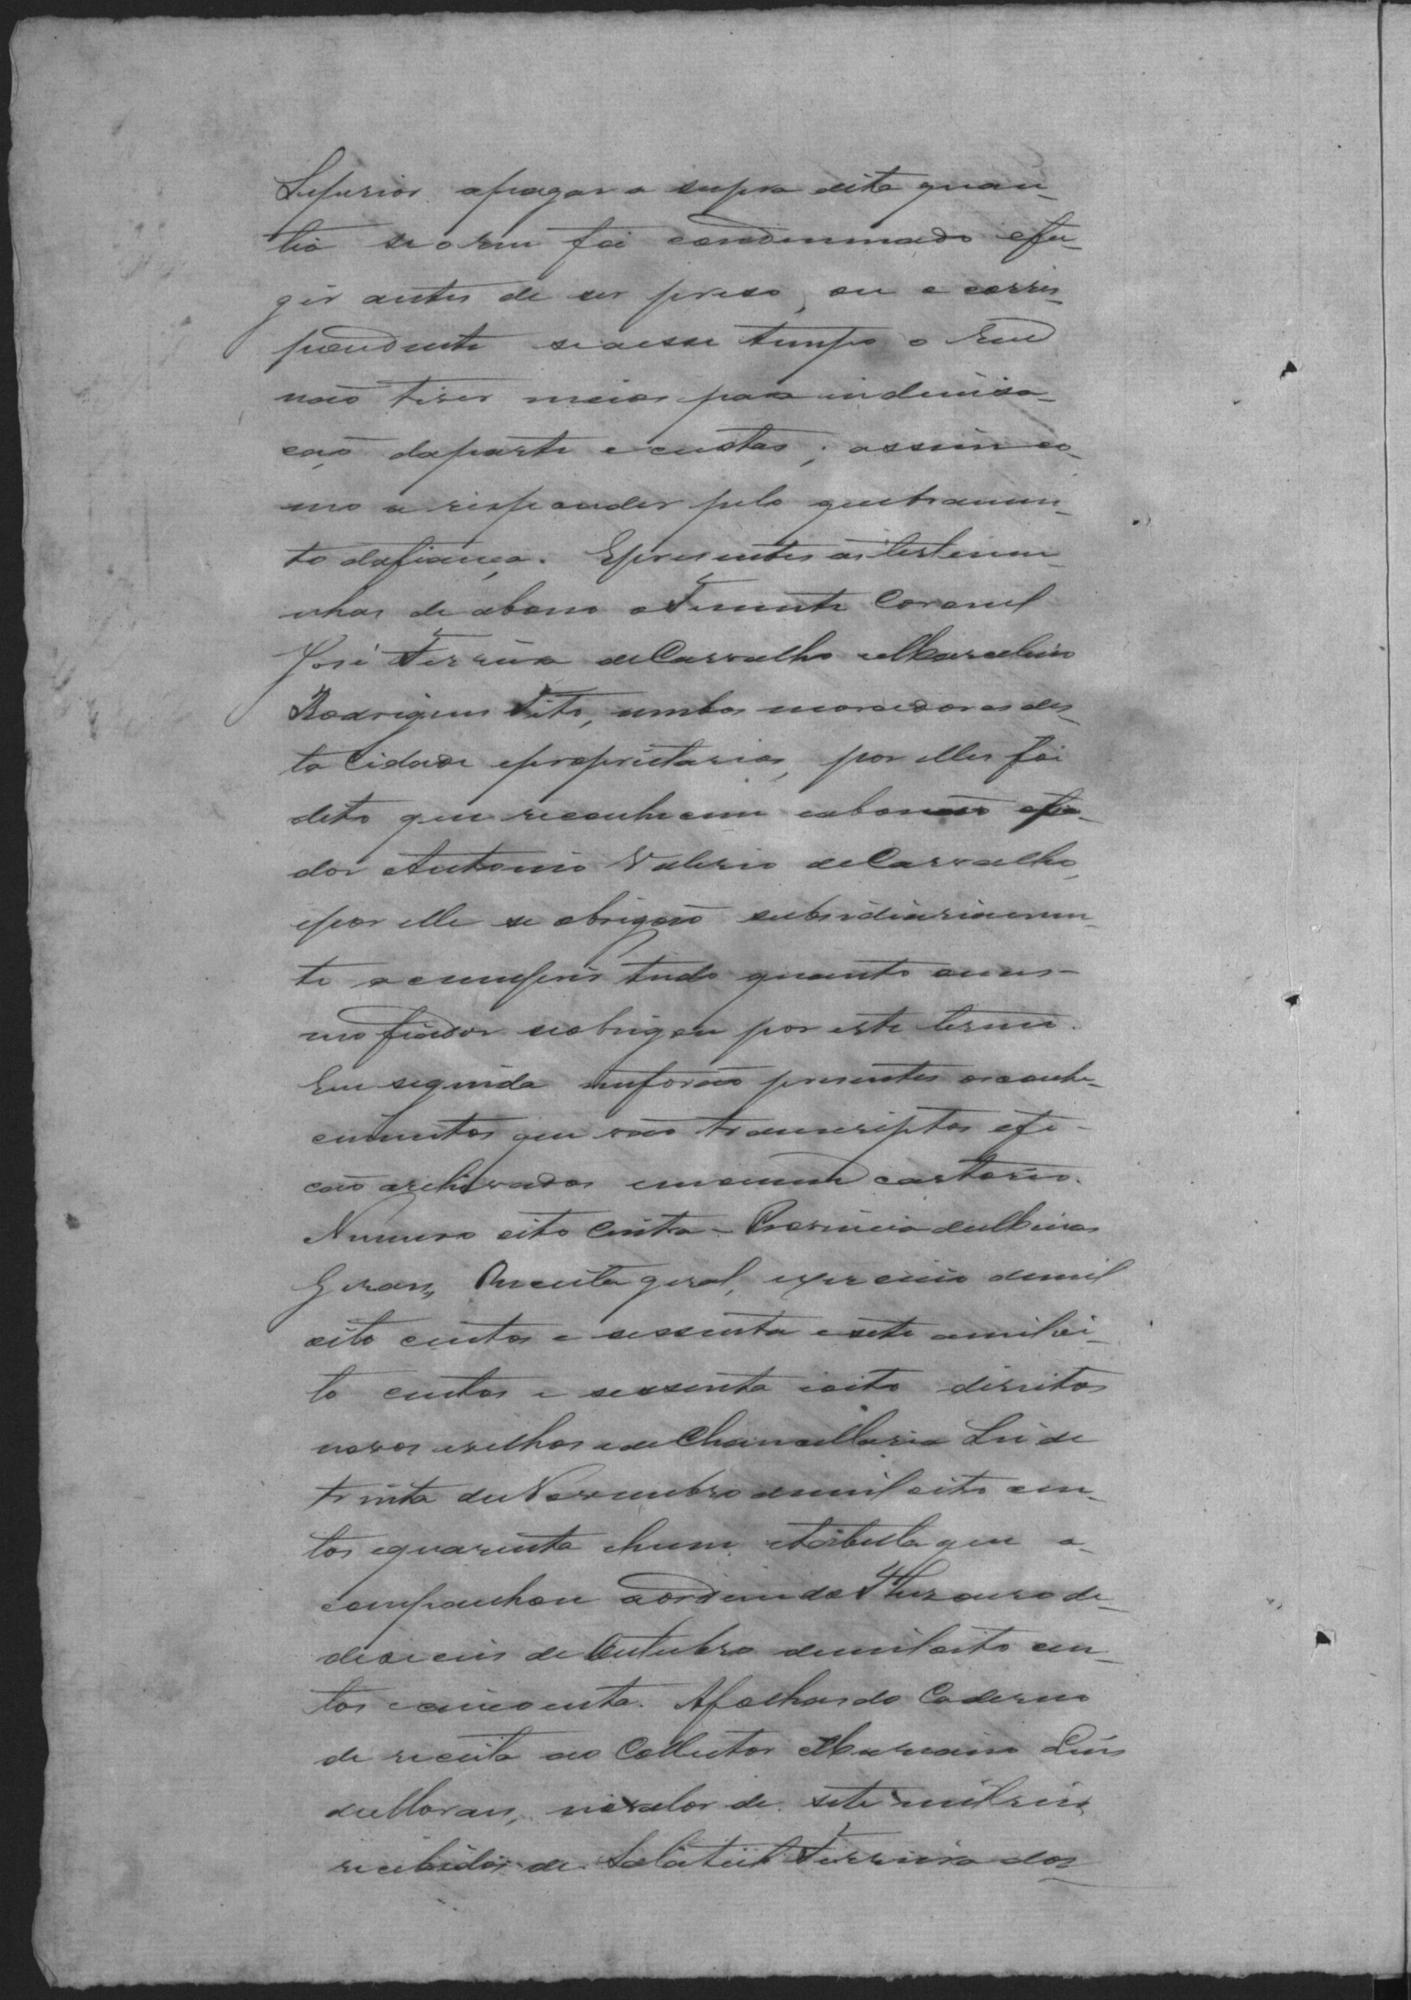 Superior apagar a supra dita quan-
tia se o reu foi condemnado e fu-
gir antes de ser preso, ou a corres-
pondente se a esse tempo o Reu
não tiver meios para indenisa-
ção da parte e custas; assim co-
mo a responder pelo quebramen-
to da fiança. E presentes as testemu-
nhas de abono o Tenente Coronel
José Ferreira de Carvalho e Marcelino
Rodrigues Tito, ambos moradores des-
ta Cidade e proprietarios, por elles foi
dito que reconhecem e abonão o fia-
dor Antonio Valerio de Carvalho,
e por elle se obrigão subsidiariamen-
te a cumprir tudo quanto o mes-
mo fiador se obrigou por este termo.
Em seguida forão presentes os conhe-
cimentos que vão transcriptos e fi-
cão archivados em meu cartorio.
Numero oito centos - Provincia de Minas
Geraes, Receita geral, exercicio de mil
oito centos e sessenta e sete a mil oi-
to centos e sessenta e oito direitos
novos e velhos e de Chancellaria Lei de
trinta de Novembro de mil oito cen-
tos e quarenta e hum e tabella que a-
companhou a ordem do Thesouro de
deseseis de Outubro de mil oito cen-
tos e cincoenta. A folhas do Caderno
de receita ao Collector Marciano Luis
de Moraes, no valor de sete mil reis
recebidos de Salatiel Ferreira dos